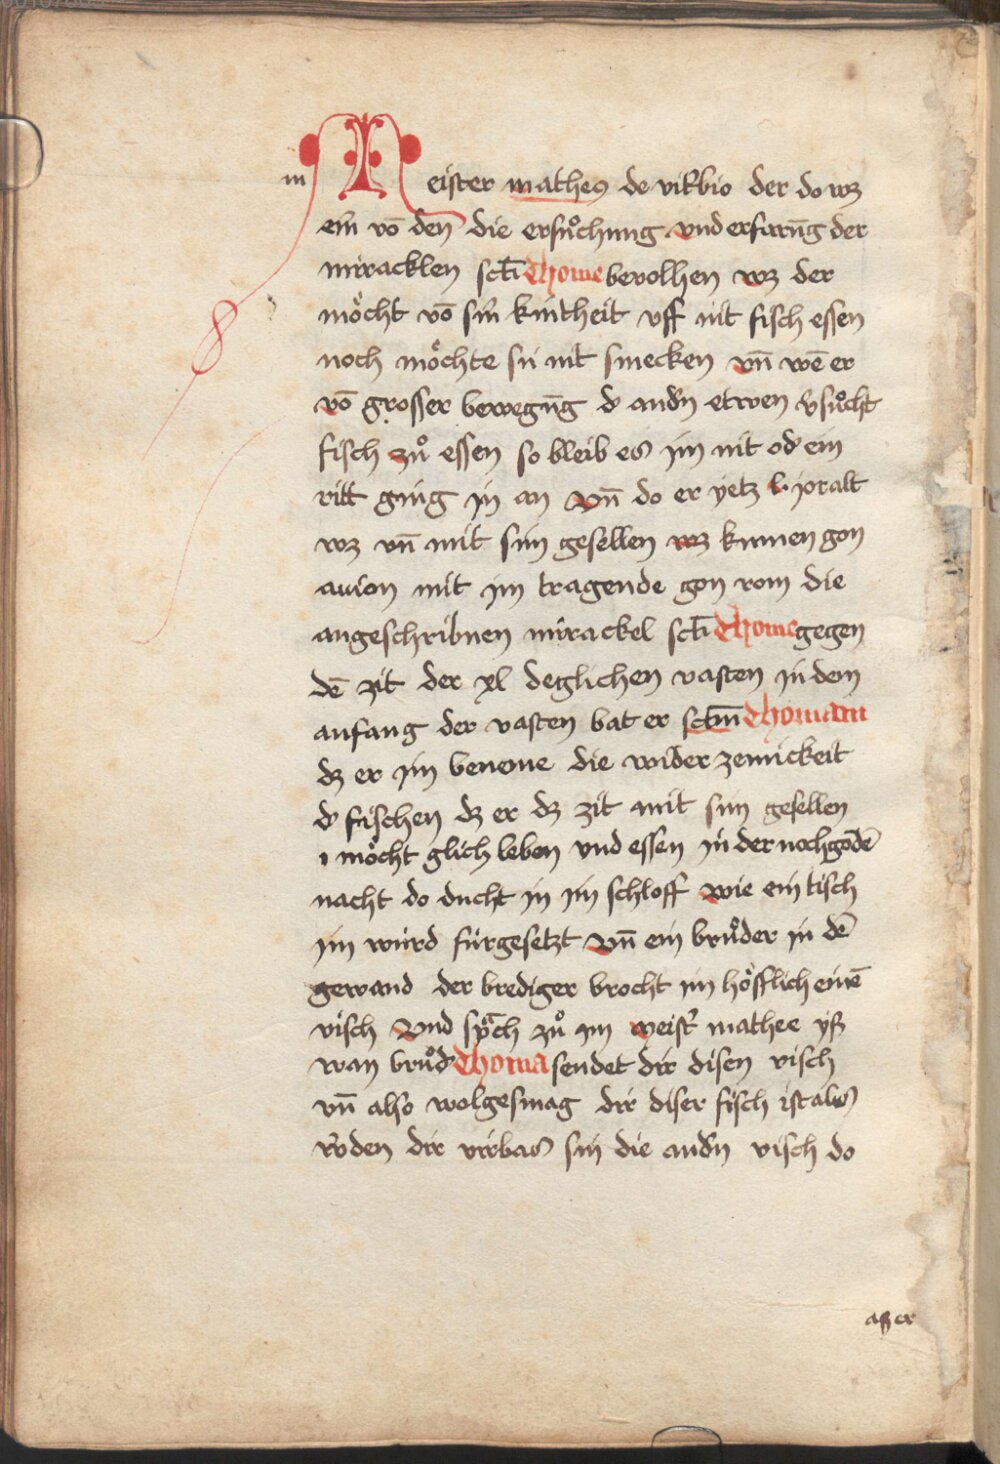 m Meister matheus de vikbio der do wz
ein vō den die ersůchung vnd erfarūg der
miracklen sctī Thome bevolhen wz der
möcht vō sin kintheit vff nit fisch essen
noch möchte sü nit smecken vn̄ wē er
vō grosser bewegūg d' andn̄ etwen v̄sůcht
fisch zů essen so bleib es jm nit od' ein
ritt ging jn an vn̄ do er yetz l· joralt
wz vn̄ mit sim gesellen wz kumen gon
auion mit jm tragende gon rom die
angeschribnen mirackel sctī Thome gegen
dē zit der xl deglichen vasten jn dem
anfang der vasten bat er sctm̄ thomam
dz er jm beneme die widerzemickeit
d' fischen dz er dz zit mit sim gesellen
möcht glich leben vnd essen jn der nochgōdē
nacht do ducht jn jm schloff wie ein tisch
jm würd fürgesetzt vn̄ ein brůder jn dē
gewand der brediger brocht jm höfflich einē
visch vnd sprach zů jm meist' mathee yß
wan brůd' Thoma sendet dir disen visch
vn̄ also wolgesmag dir diser fisch ist als
werden dir vürbas sin die andn̄ visch do
aß er